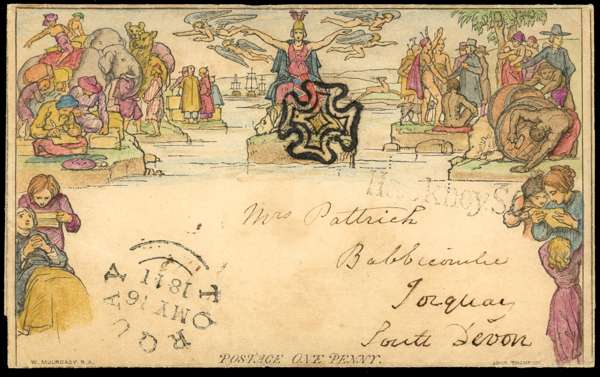 Mrs Pattrick
Babbicombe
Torquay
South Devon
TORQUAY
MY 16
1841
POSTAGE ONE PENNY.
W. MULREADY. R.A.
JOHN THOMPSON